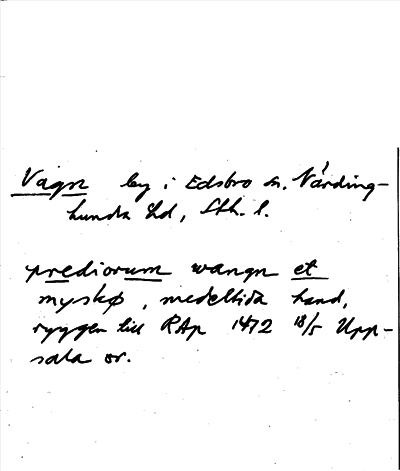 Vagn by i Edsbro sn. Närding-
hundra hd, Sth. l.
prediorum wangn et
myskø, medeltida hand,
ryggen till RAp 1472 18/5 Upp-
sala or.